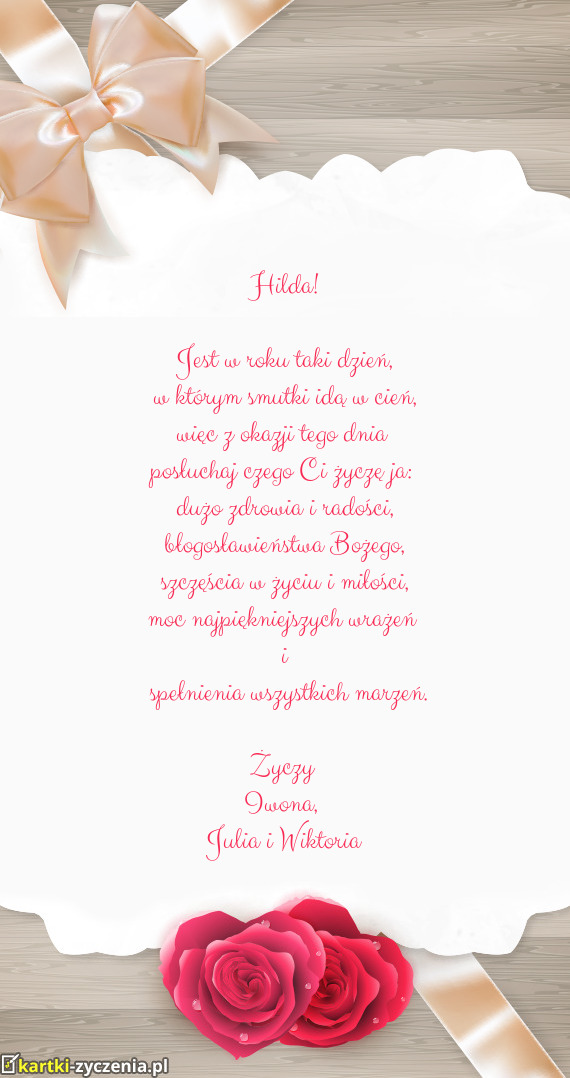 Hilda!
Jest w roku taki dzień,
w którym smutki idą w cień,
więc z okazji tego dnia
posłuchaj czego Ci życzę ja:
dużo zdrowia i radości,
błogosławieństwa Bożego,
szczęścia w życiu i miłości,
moc najpiękniejszych wrażeń
i
spełnienia wszystkich marzeń.
Życzy
Iwona,
Julia i Wiktoria
kartki-zyczenia.pl